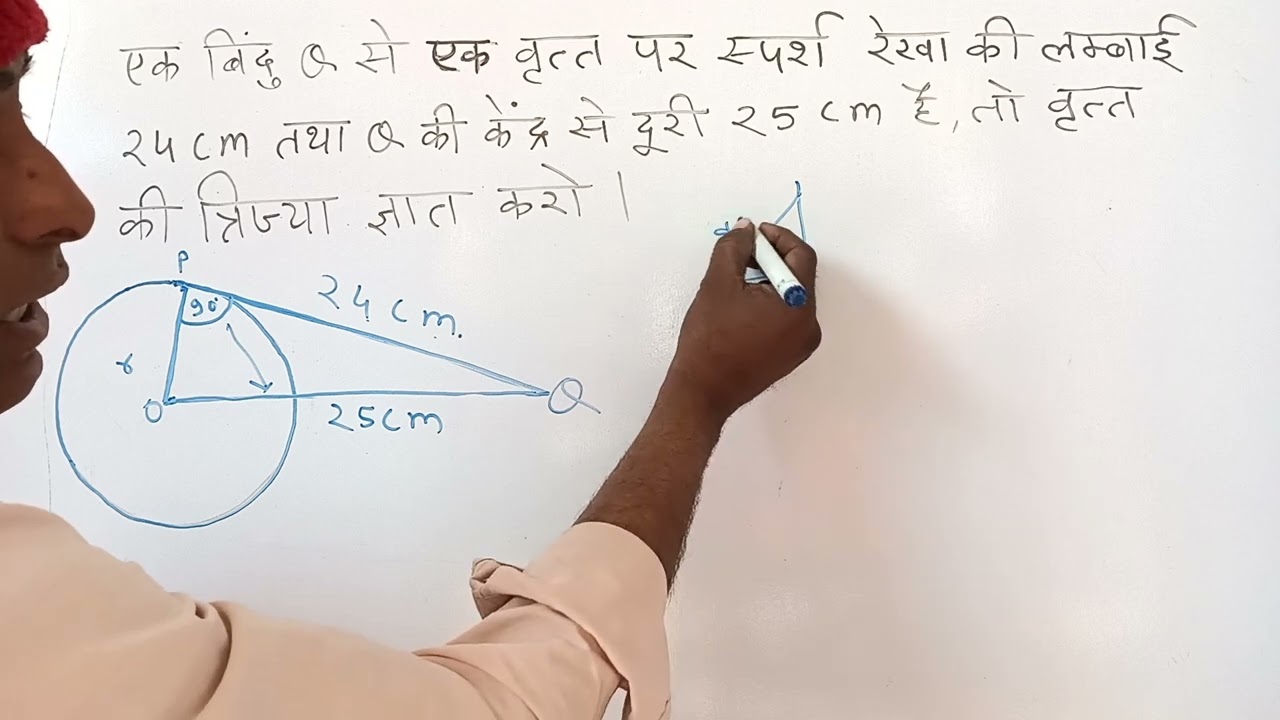 एक बिंदु Q से एक वृत्त पर स्पर्श रेखा की लम्बाई
24 cm तथा Q की केंद्र से दूरी 25 cm है, तो वृत्त
की त्रिज्या ज्ञात करो।
P
90°
24 cm.
r
O
25 cm
Q